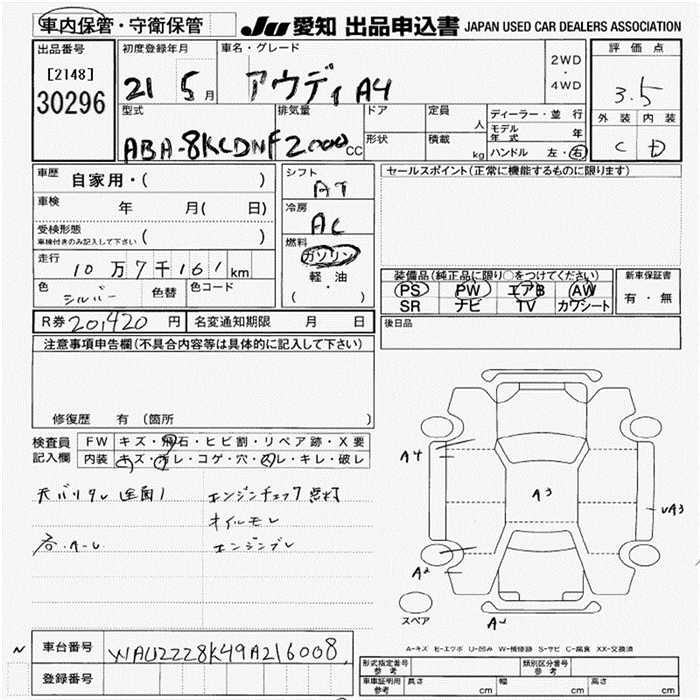 車内保管・守衛保管 JU 愛知 出品申込書 JAPAN USED CAR DEALERS ASSOCIATION
出品番号 初度登録年月 車名・グレード 2WD・4WD 評価点
[2148] 30296 21 5月 アウディ A4 3.5
型式 排気量 ドア 定員 人 ディーラー・並行 外装 内装
ABA-8KCDNF 2000cc 形状 積載 kg モデル年式 年 C D
ハンドル 左・右
車歴 自家用・( ) シフト AT セールスポイント(正常に機能するものに限ります)
車検 年 月( 日) 冷房 AC
受検形態 車検付きのみ記入して下さい ( ) 燃料 ガソリン
走行 10万7千161km 軽・油
色 シルバー 色替 色コード ( )
装備品(純正品に限り○をつけてください) 新車保証書
PS PW エアB AW 有・無
SR ナビ TV カワシート
R券 20,420円 名変通知期限 月 日 後日品
注意事項申告欄(不具合内容等は具体的に記入して下さい)
修復歴 有 (箇所 )
検査員記入欄 FW キズ・飛石・ヒビ割・リペア跡・X要
内装 キズ・汚レ・コゲ・穴・スレ・キレ・破レ
エンジンチェック点灯
オイルモレ
A4 A3 A3
A2
スペア
A-キズ E-エクボ U-凹み W-補修跡 S-サビ C-腐食 XX-交換済
車台番号 WAUZZZ8K49A216008
登録番号
形式指定番号 参考 類別区分番号 参考
車庫証明用 参考 長さ cm 幅 cm 高さ cm